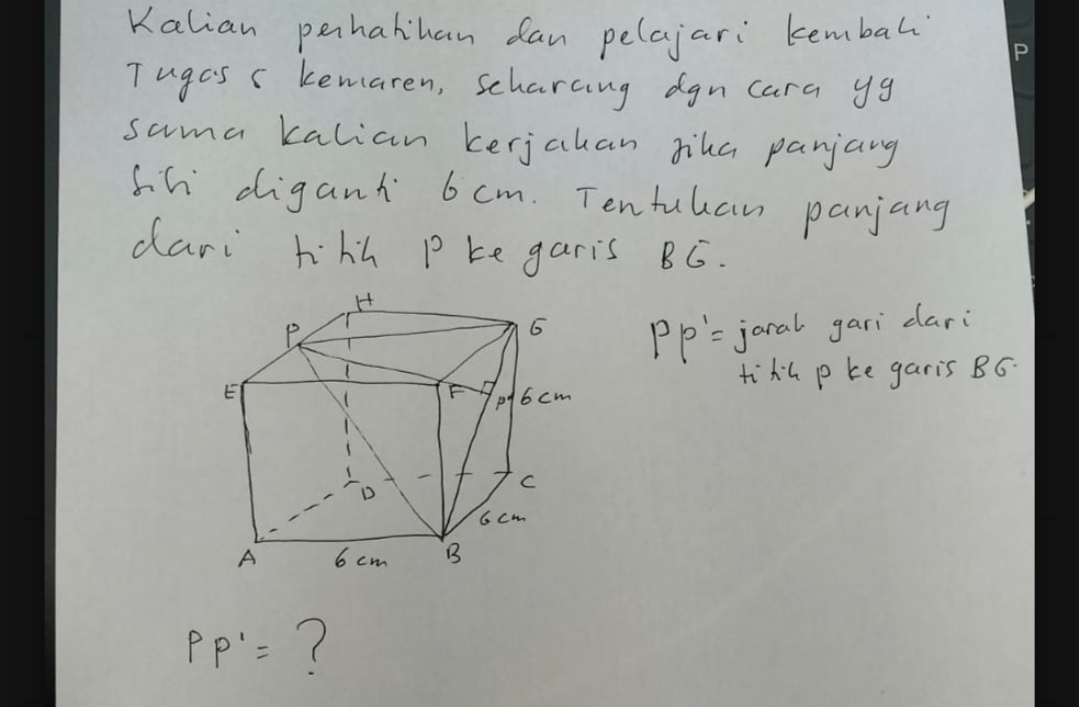 Kalian perhatikan dan pelajari kembali
Tugas 5 kemaren, sekarang dgn cara yg
sama kalian kerjakan jika panjang
sisi diganti 6 cm. Tentukan panjang
dari titik P ke garis BG.
H
P
G
E
F
P'
6 cm
D
C
6 cm
A
6 cm
B
PP' = jarak gari dari
titik P ke garis BG.
PP' = ?
P